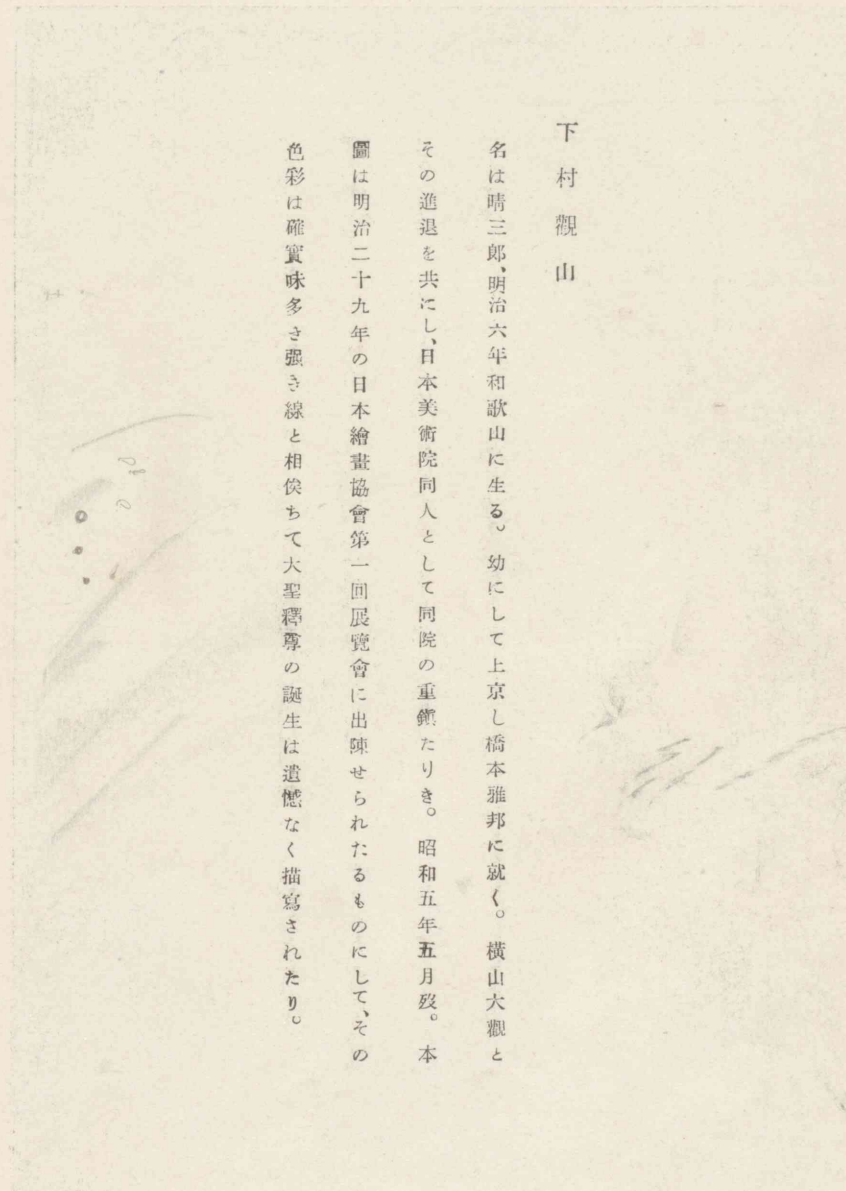 下村觀山
名は晴三郎、明治六年和歌山に生る。幼にして上京し橋本雅邦に就く。橫山大觀と
その進退を共にし、日本美術院同人として同院の重鎭たりき。昭和五年五月歿。本
圖は明治二十九年の日本繪畫協會第一回展覽會に出陳せられたるものにして、その
色彩は確實味多き强き線と相俟ちて大聖釋尊の誕生は遺憾なく描寫されたり。